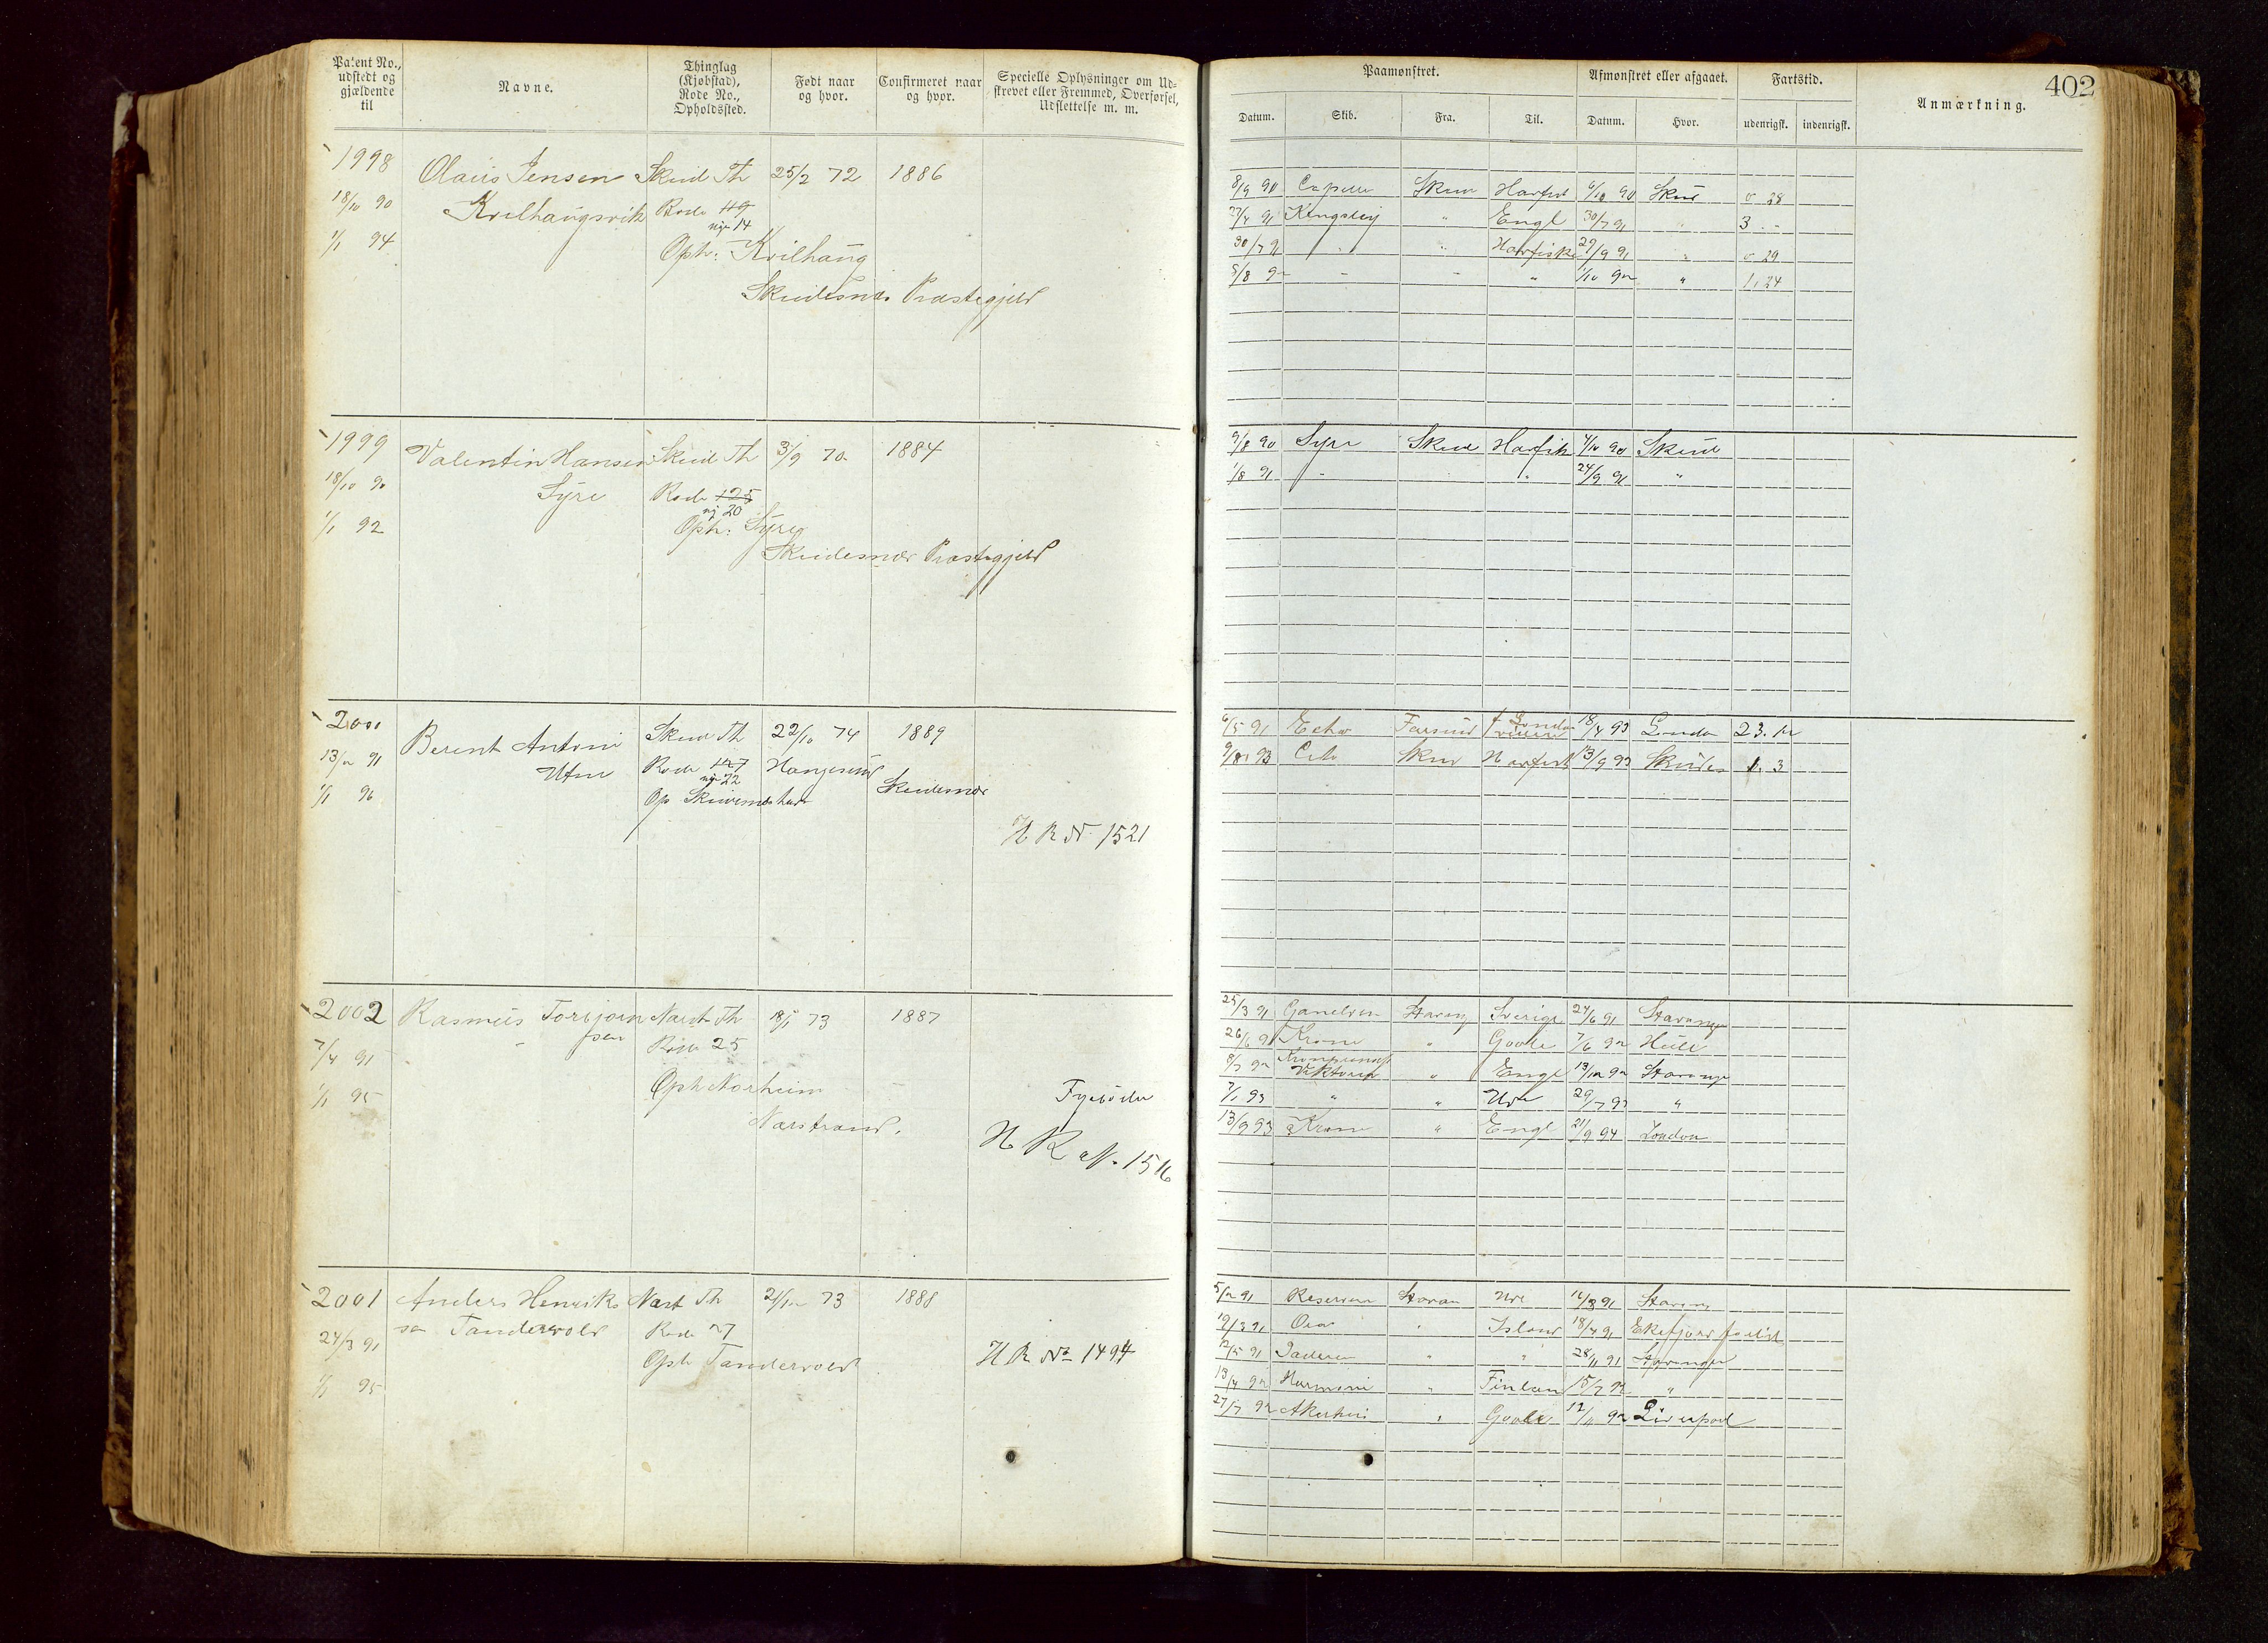 Patent No., udstedt og gjældende til
Navne.
Thinglag (Kjøbstad), Rode No., Opholdssted.
Født naar og hvor.
Confirmeret naar og hvor.
Specielle Oplysninger om Udskrevet eller Fremmed, Overførsel, Udslettelse m. m.
1998 Olaus Jensen Skud Th 25/2 72 1886
18/10 90 Kvilhaugsvik Rode 119
nye 14
1/1 94 Oph: Kvilhaug
Skudesnæs Præstegjeld
1999 Valentin Hansen Skud Th 3/9 70 1884
18/10 90 Syre Rode 125
ny 20
1/1 92 Oph: Syre
Skudesnæs Præstegjeld
Berent Antoni Skud Th 22/10 74 1889
91 Utne Rode
nye 22
1/1 96 Op Skudesneshavn Skudesnæs
H R N 1521
2002 Rasmus Torbjørn Narst Th 18/1 73 1887
sen
7/4 91 Rode 25
1/1 95 Oph Norheim
Narstrand.
H R N. 1516
2001 Anders Henriks Narst Th 73 1888
sen Tandervold
24/3 91 Rode 27
Oph Tandervold H R No 1494
1/1 95
402
Paamønstret. Afmønstret eller afgaaet. Fartstid. Anmærkning.
Datum. Skib. Fra. Til. Datum. Hvor. udenrigsk. indenrigsk.
8/9 90 Capella Skud Havfisk 6/10 90 Skud 0 28
27/4 91 Kingsley " Engl 30/7 91 " 3 -
30/7 91 " " Havfiske 29/9 91 " 0 29
5/8 92 - - " 1/10 92 " 1, 24
9/8 90 Syre Skud Havfisk 4/10 90 Skud
1/8 91 - " 24/9 91 "
6/5 91 Echo Farsund 18/4 93 London 23.
9/8 93 Skud Havfisk 13/9 93 Skudes 1. 3
25/3 91 Stavang Sverige 27/6 91 Stavanger
26/6 91 Krone " Goole 7/6 92 Hull
8/7 92 Kronprinds
Viktoria " Engl 13/12 92 Stavanger
7/1 93 " " 29/7 93 "
13/9 93 Krone " Engl 21/9 94 London
5/2 91 Stavan 91 Stavang
19/3 91 " Island 18/4 91 Ekefjord forlist
12/5 91 Jaderen " " 28/11 91 Stavanger
13/4 92 Harmoni " Finlan 15/7 92 "
27/7 92 Akershus " Goole 12/11 92 Liverpool